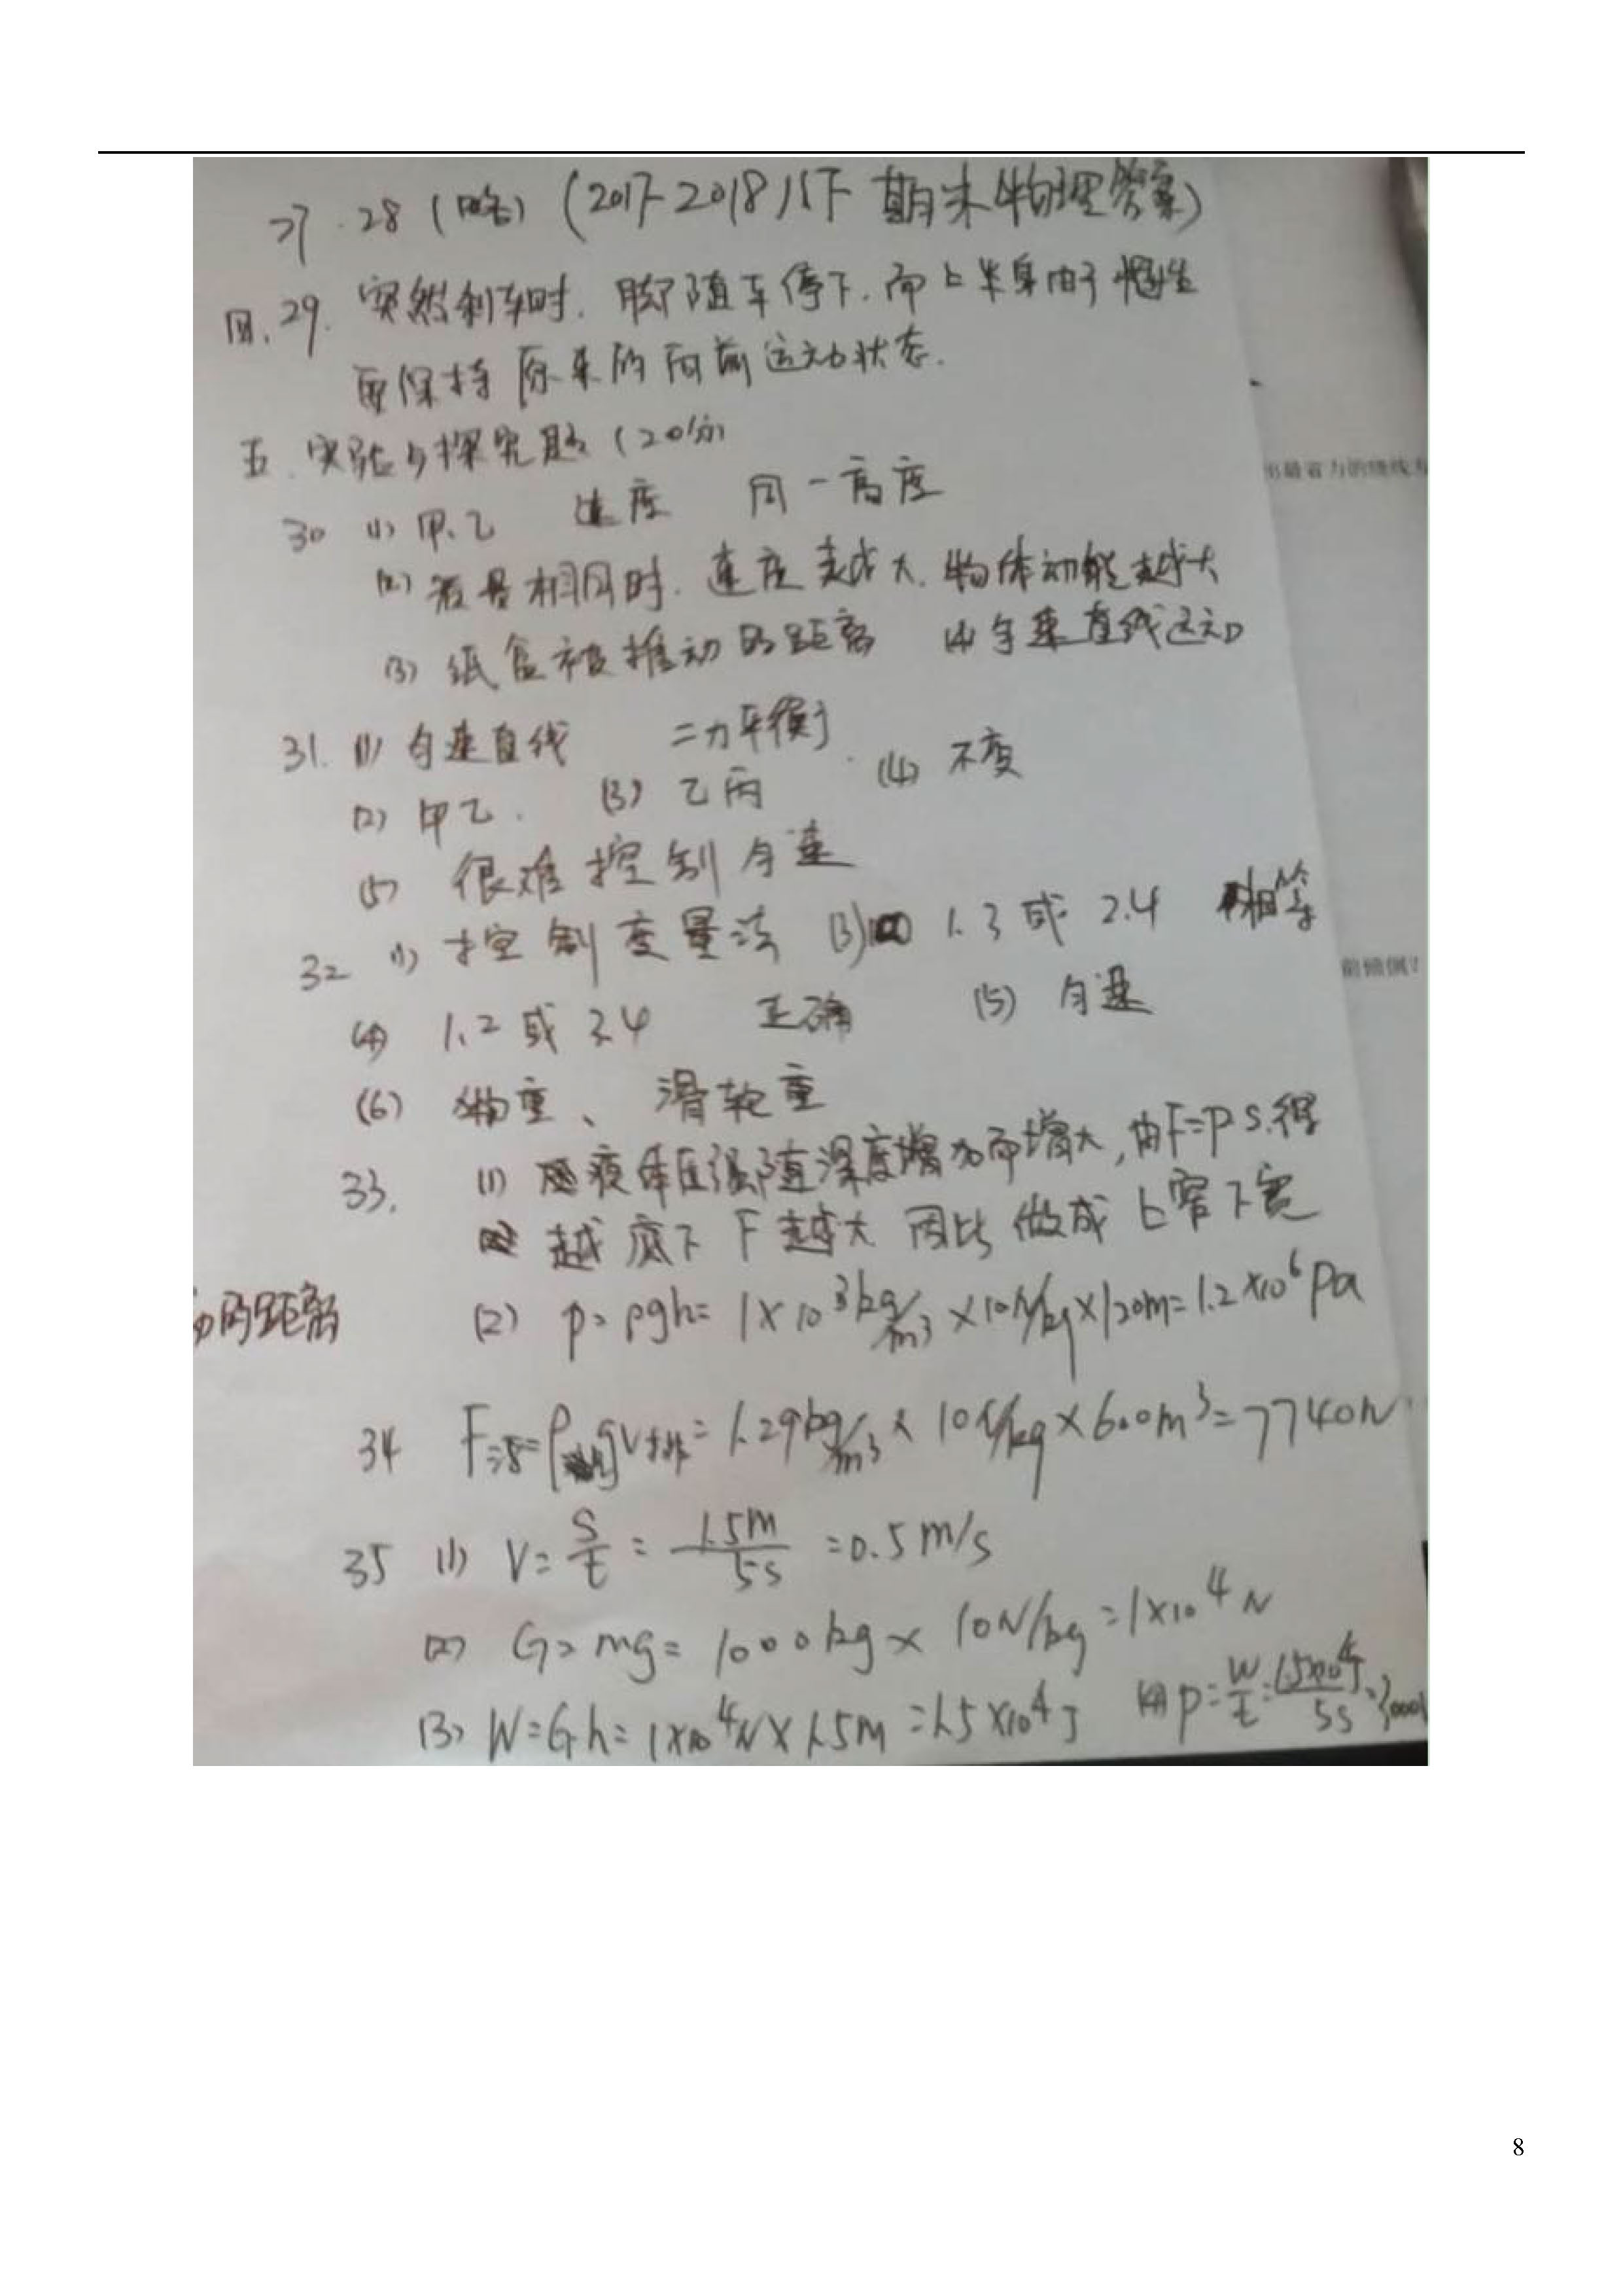 27.28(略)(2017-2018八下期末物理答案)
四.29.突然刹车时.脚随车停下.而上半身由于惯性
要保持原来的向前运动状态.
五.实验与探究题(20分)
30 (1)甲、乙 速度 同一高度
(2)质量相同时.速度越大.物体动能越大
(3)纸盒被推动的距离 (4)匀速直线运动
31.(1)匀速直线 二力平衡
(2)甲乙. (3)乙丙 (4)不变
(5)很难控制匀速
32 (1)控制变量法 (3) 1.3或2.4 相等
(4) 1.2或3.4 正确 (5)匀速
(6)物重、滑轮重
33. (1)液体压强随深度增加而增大,由F=PS.得
越底下F越大因此做成上窄下宽
的距离
(2) p=ρgh=1×10³kg/m³×10N/kg×120m=1.2×10⁶Pa
34 F浮=ρgV排=1.29kg/m³×10N/kg×600m³=7740N
35 (1) V=S/t=1.5m/5s=0.5m/s
(2) G=mg=1000kg×10N/kg=1×10⁴N
(3) W=Gh=1×10⁴N×1.5m=1.5×10⁴J (4) P=W/t=1.5×10⁴J/5s=3000
出最省力的绕线方
前倾倒?
8